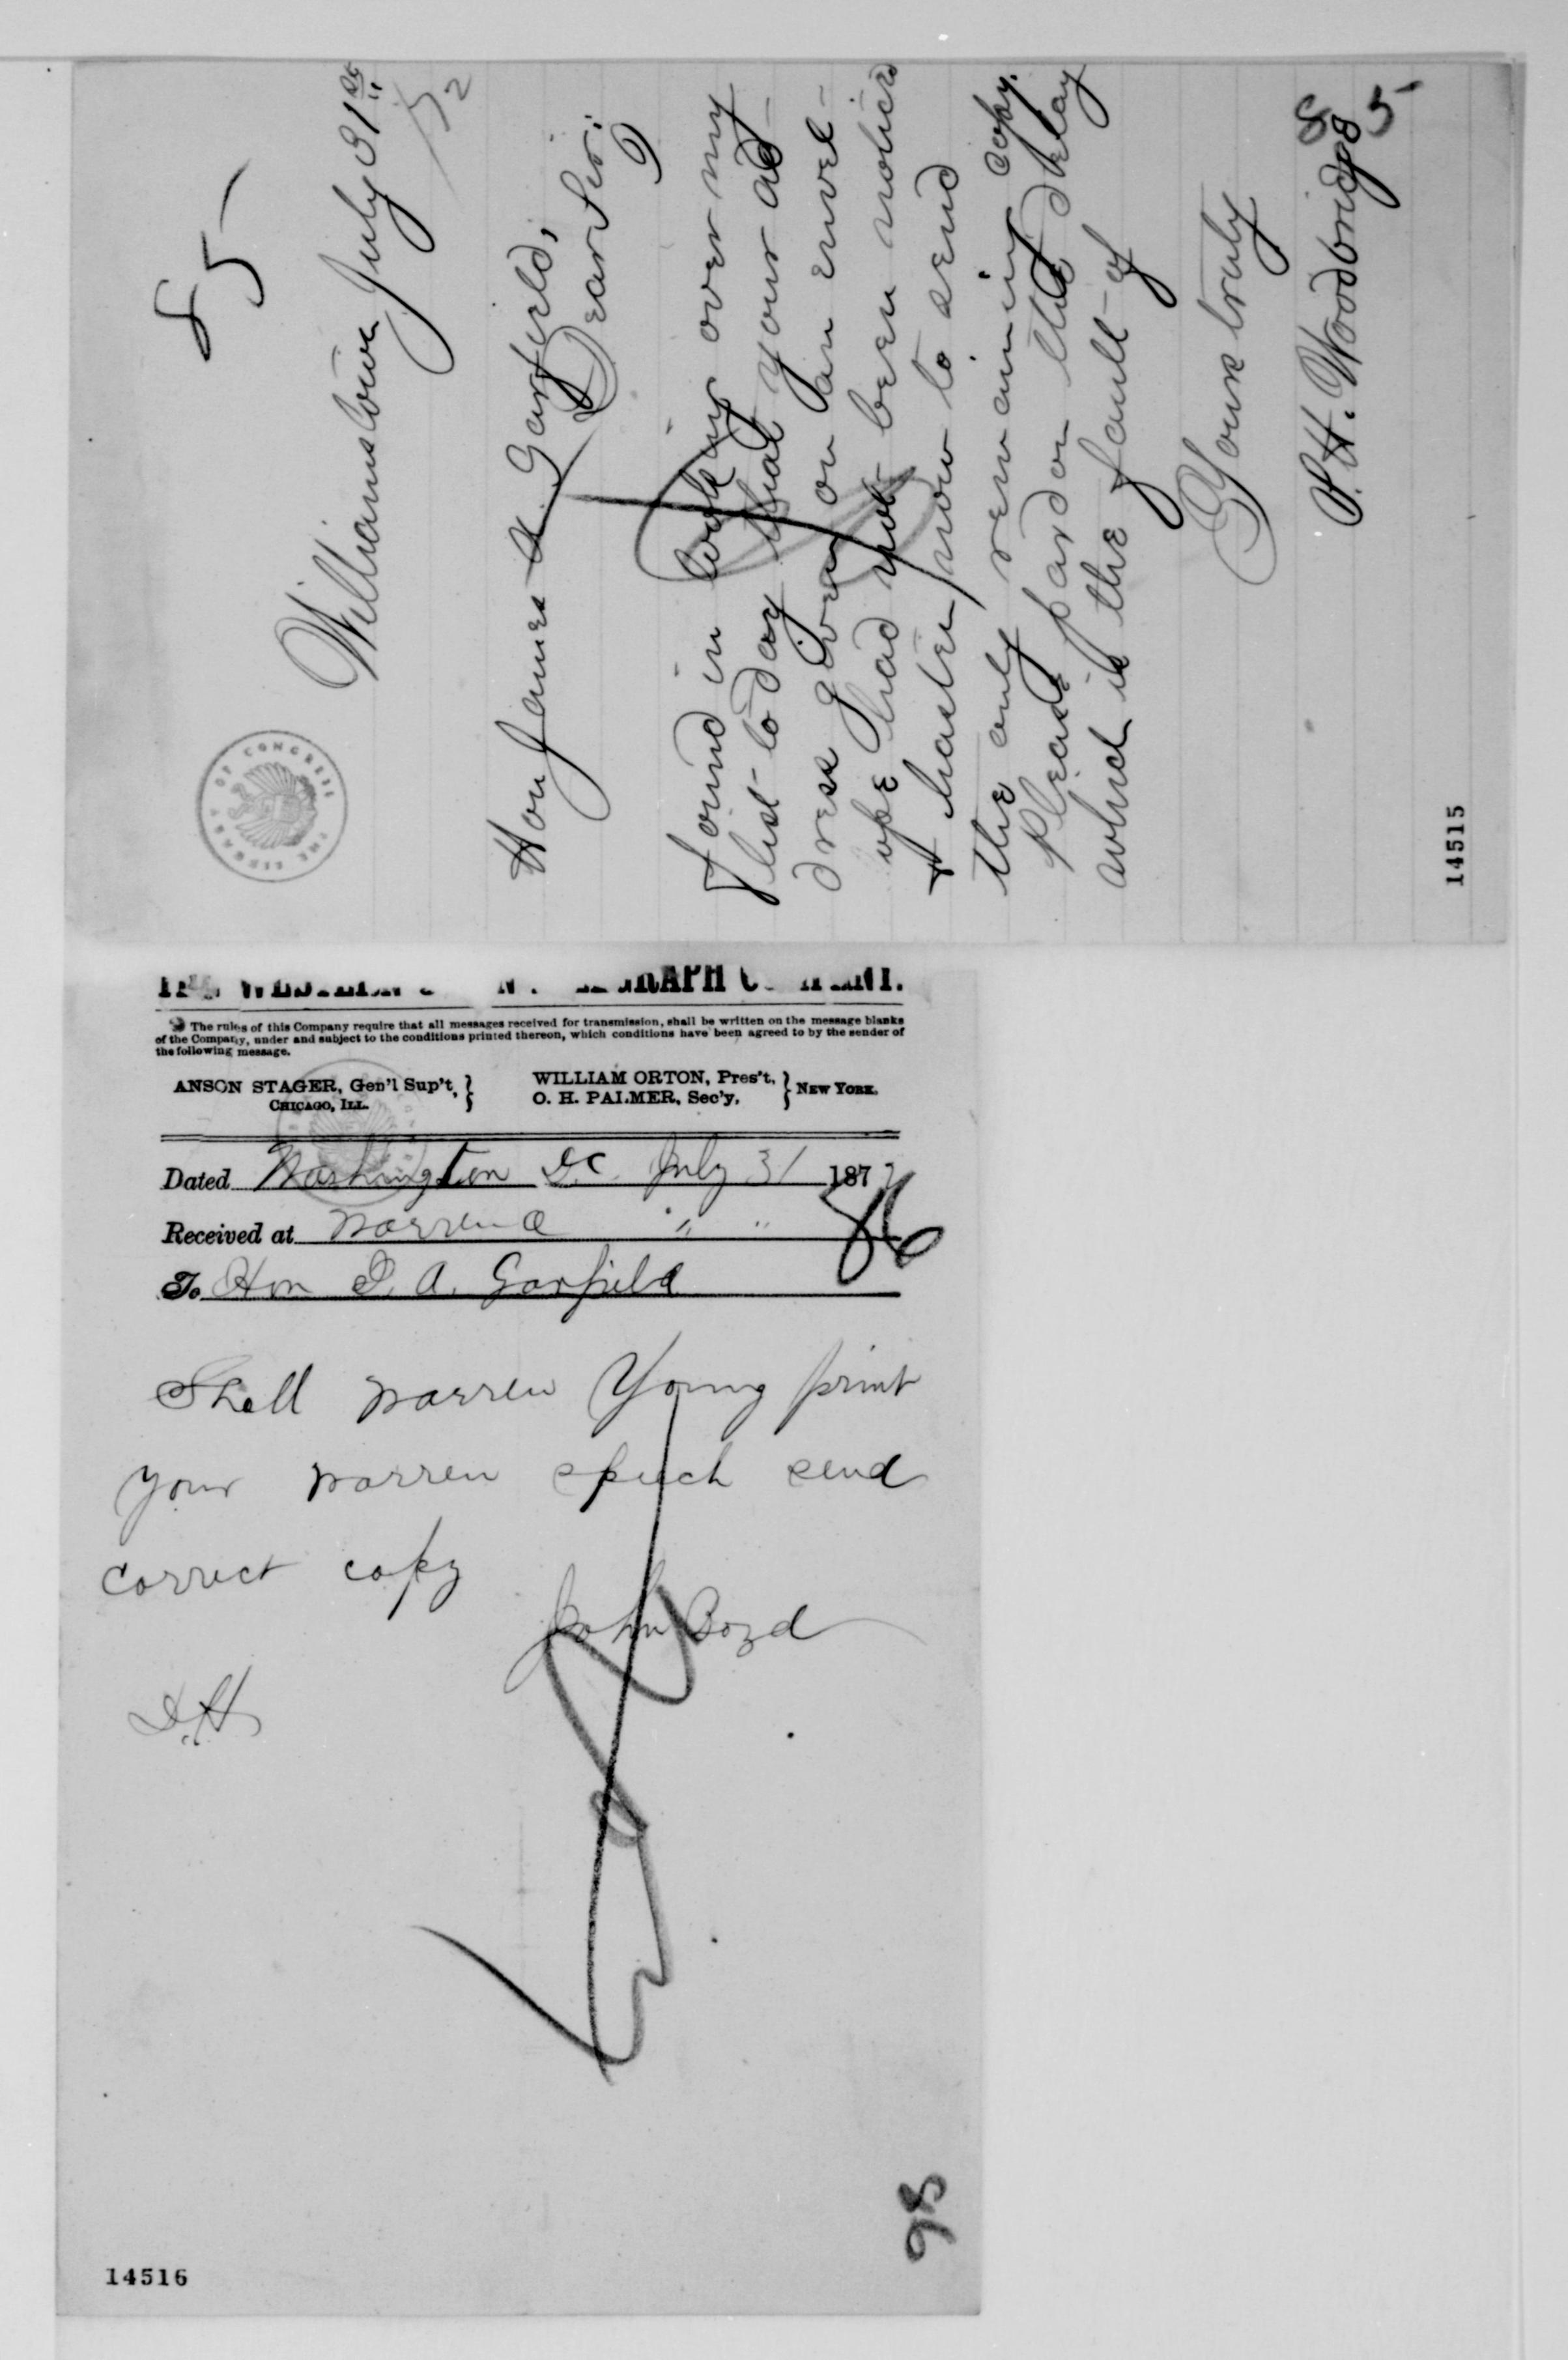 85
Williamstown July 31st
/72
Hon James A. Garfield;
Dear Sir:
I
found in looking over my
list to day that your ad-
dress given on an envel-
ope had not been noticed
& hasten now to send
the only remaining copy.
Please pardon the delay
which is the fault of
Yours truly
S. H. Woodbridge
85
14515
THE LIBRARY OF CONGRESS
THE WESTERN UNION TELEGRAPH COMPANY.
The rules of this Company require that all messages received for transmission, shall be written on the message blanks
of the Company, under and subject to the conditions printed thereon, which conditions have been agreed to by the sender of
the following message.
ANSON STAGER, Gen'l Sup't,
CHICAGO, ILL.
WILLIAM ORTON, Pres't,
O. H. PALMER, Sec'y,
NEW YORK.
Dated Washington DC July 31 1872
Received at Warren O " "
86
To Hon J. A. Garfield
Shall Warren Young print
your Warren speech send
correct copy
John Boyd
D.H
86
14516